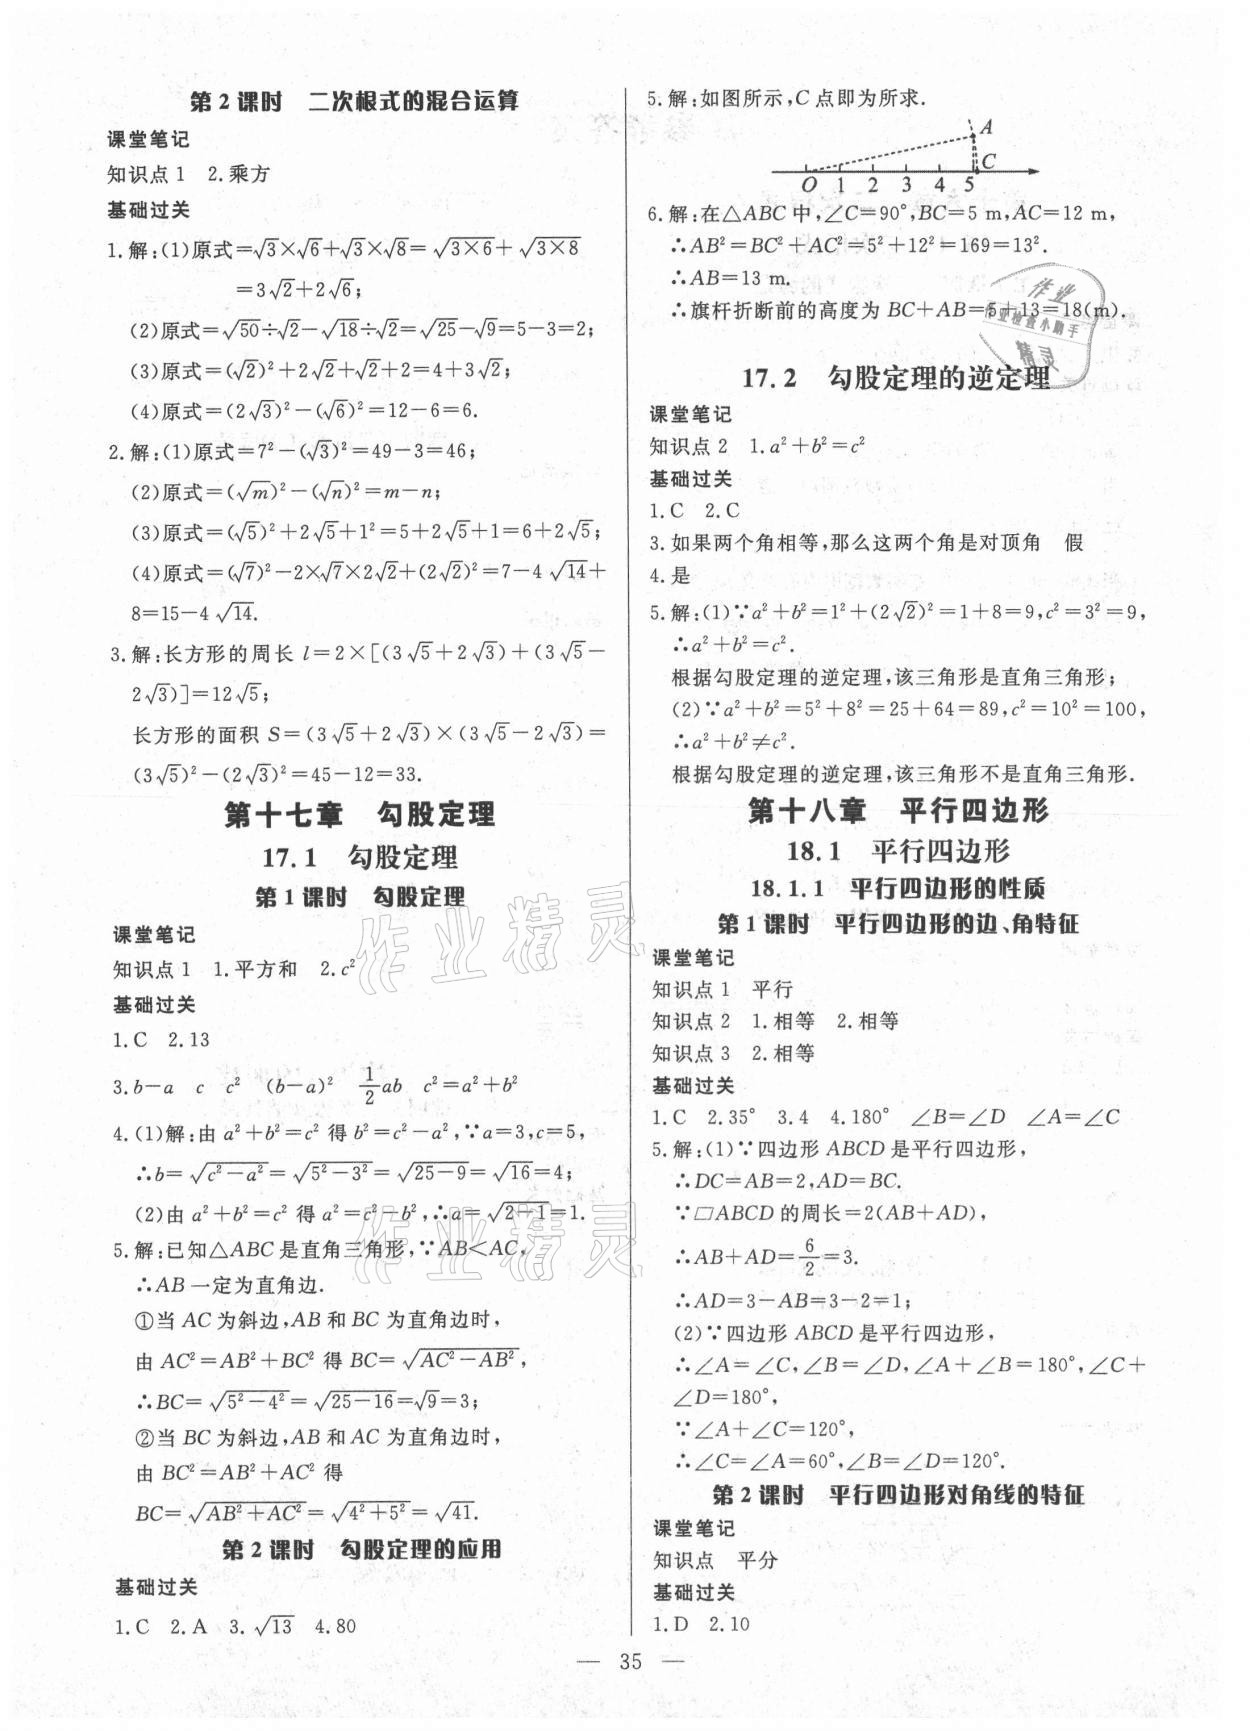 第2课时　二次根式的混合运算
课堂笔记
知识点1　2.乘方
基础过关
1.解:(1)原式=√3×√6+√3×√8=√(3×6)+√(3×8)
=3√2+2√6;
(2)原式=√50÷√2-√18÷√2=√25-√9=5-3=2;
(3)原式=(√2)²+2√2+√2+2=4+3√2;
(4)原式=(2√3)²-(√6)²=12-6=6.
2.解:(1)原式=7²-(√3)²=49-3=46;
(2)原式=(√m)²-(√n)²=m-n;
(3)原式=(√5)²+2√5+1²=5+2√5+1=6+2√5;
(4)原式=(√7)²-2×√7×2√2+(2√2)²=7-4√14+
8=15-4√14.
3.解:长方形的周长 l=2×[(3√5+2√3)+(3√5-
2√3)]=12√5;
长方形的面积 S=(3√5+2√3)×(3√5-2√3)=
(3√5)²-(2√3)²=45-12=33.
第十七章　勾股定理
17.1　勾股定理
第1课时　勾股定理
课堂笔记
知识点1　1.平方和　2.c²
基础过关
1.C　2.13
3.b-a　c　c²　(b-a)²　1/2 ab　c²=a²+b²
4.(1)解:由 a²+b²=c² 得 b²=c²-a²,∵a=3,c=5,
∴b=√(c²-a²)=√(5²-3²)=√(25-9)=√16=4;
(2)由 a²+b²=c² 得 a²=c²-b²,∴a=√(2-1)=1.
5.解:已知△ABC 是直角三角形,∵AB<AC,
∴AB 一定为直角边.
①当 AC 为斜边,AB 和 BC 为直角边时,
由 AC²=AB²+BC² 得 BC=√(AC²-AB²),
∴BC=√(5²-4²)=√(25-16)=√9=3;
②当 BC 为斜边,AB 和 AC 为直角边时,
由 BC²=AB²+AC² 得
BC=√(AB²+AC²)=√(4²+5²)=√41.
第2课时　勾股定理的应用
基础过关
1.C　2.A　3.√13　4.80
5.解:如图所示,C 点即为所求.
A
C
O　1　2　3　4　5
6.解:在△ABC 中,∠C=90°,BC=5 m,AC=12 m,
∴AB²=BC²+AC²=5²+12²=169=13².
∴AB=13 m.
∴旗杆折断前的高度为 BC+AB=5+13=18(m).
作业
作业检查小助手
精灵
17.2　勾股定理的逆定理
课堂笔记
知识点2　1.a²+b²=c²
基础过关
1.C　2.C
3.如果两个角相等,那么这两个角是对顶角　假
4.是
5.解:(1)∵a²+b²=1²+(2√2)²=1+8=9,c²=3²=9,
∴a²+b²=c².
根据勾股定理的逆定理,该三角形是直角三角形;
(2)∵a²+b²=5²+8²=25+64=89,c²=10²=100,
∴a²+b²≠c².
根据勾股定理的逆定理,该三角形不是直角三角形.
第十八章　平行四边形
18.1　平行四边形
18.1.1　平行四边形的性质
第1课时　平行四边形的边、角特征
课堂笔记
知识点1　平行
知识点2　1.相等　2.相等
知识点3　2.相等
基础过关
1.C　2.35°　3.4　4.180°　∠B=∠D　∠A=∠C
5.解:(1)∵四边形 ABCD 是平行四边形,
∴DC=AB=2,AD=BC.
∵▱ABCD 的周长=2(AB+AD),
∴AB+AD=6/2=3.
∴AD=3-AB=3-2=1;
(2)∵四边形 ABCD 是平行四边形,
∴∠A=∠C,∠B=∠D,∠A+∠B=180°,∠C+
∠D=180°,
∵∠A+∠C=120°,
∴∠C=∠A=60°,∠B=∠D=120°.
第2课时　平行四边形对角线的特征
课堂笔记
知识点　平分
基础过关
1.D　2.10
作业精灵
作业精灵
— 35 —